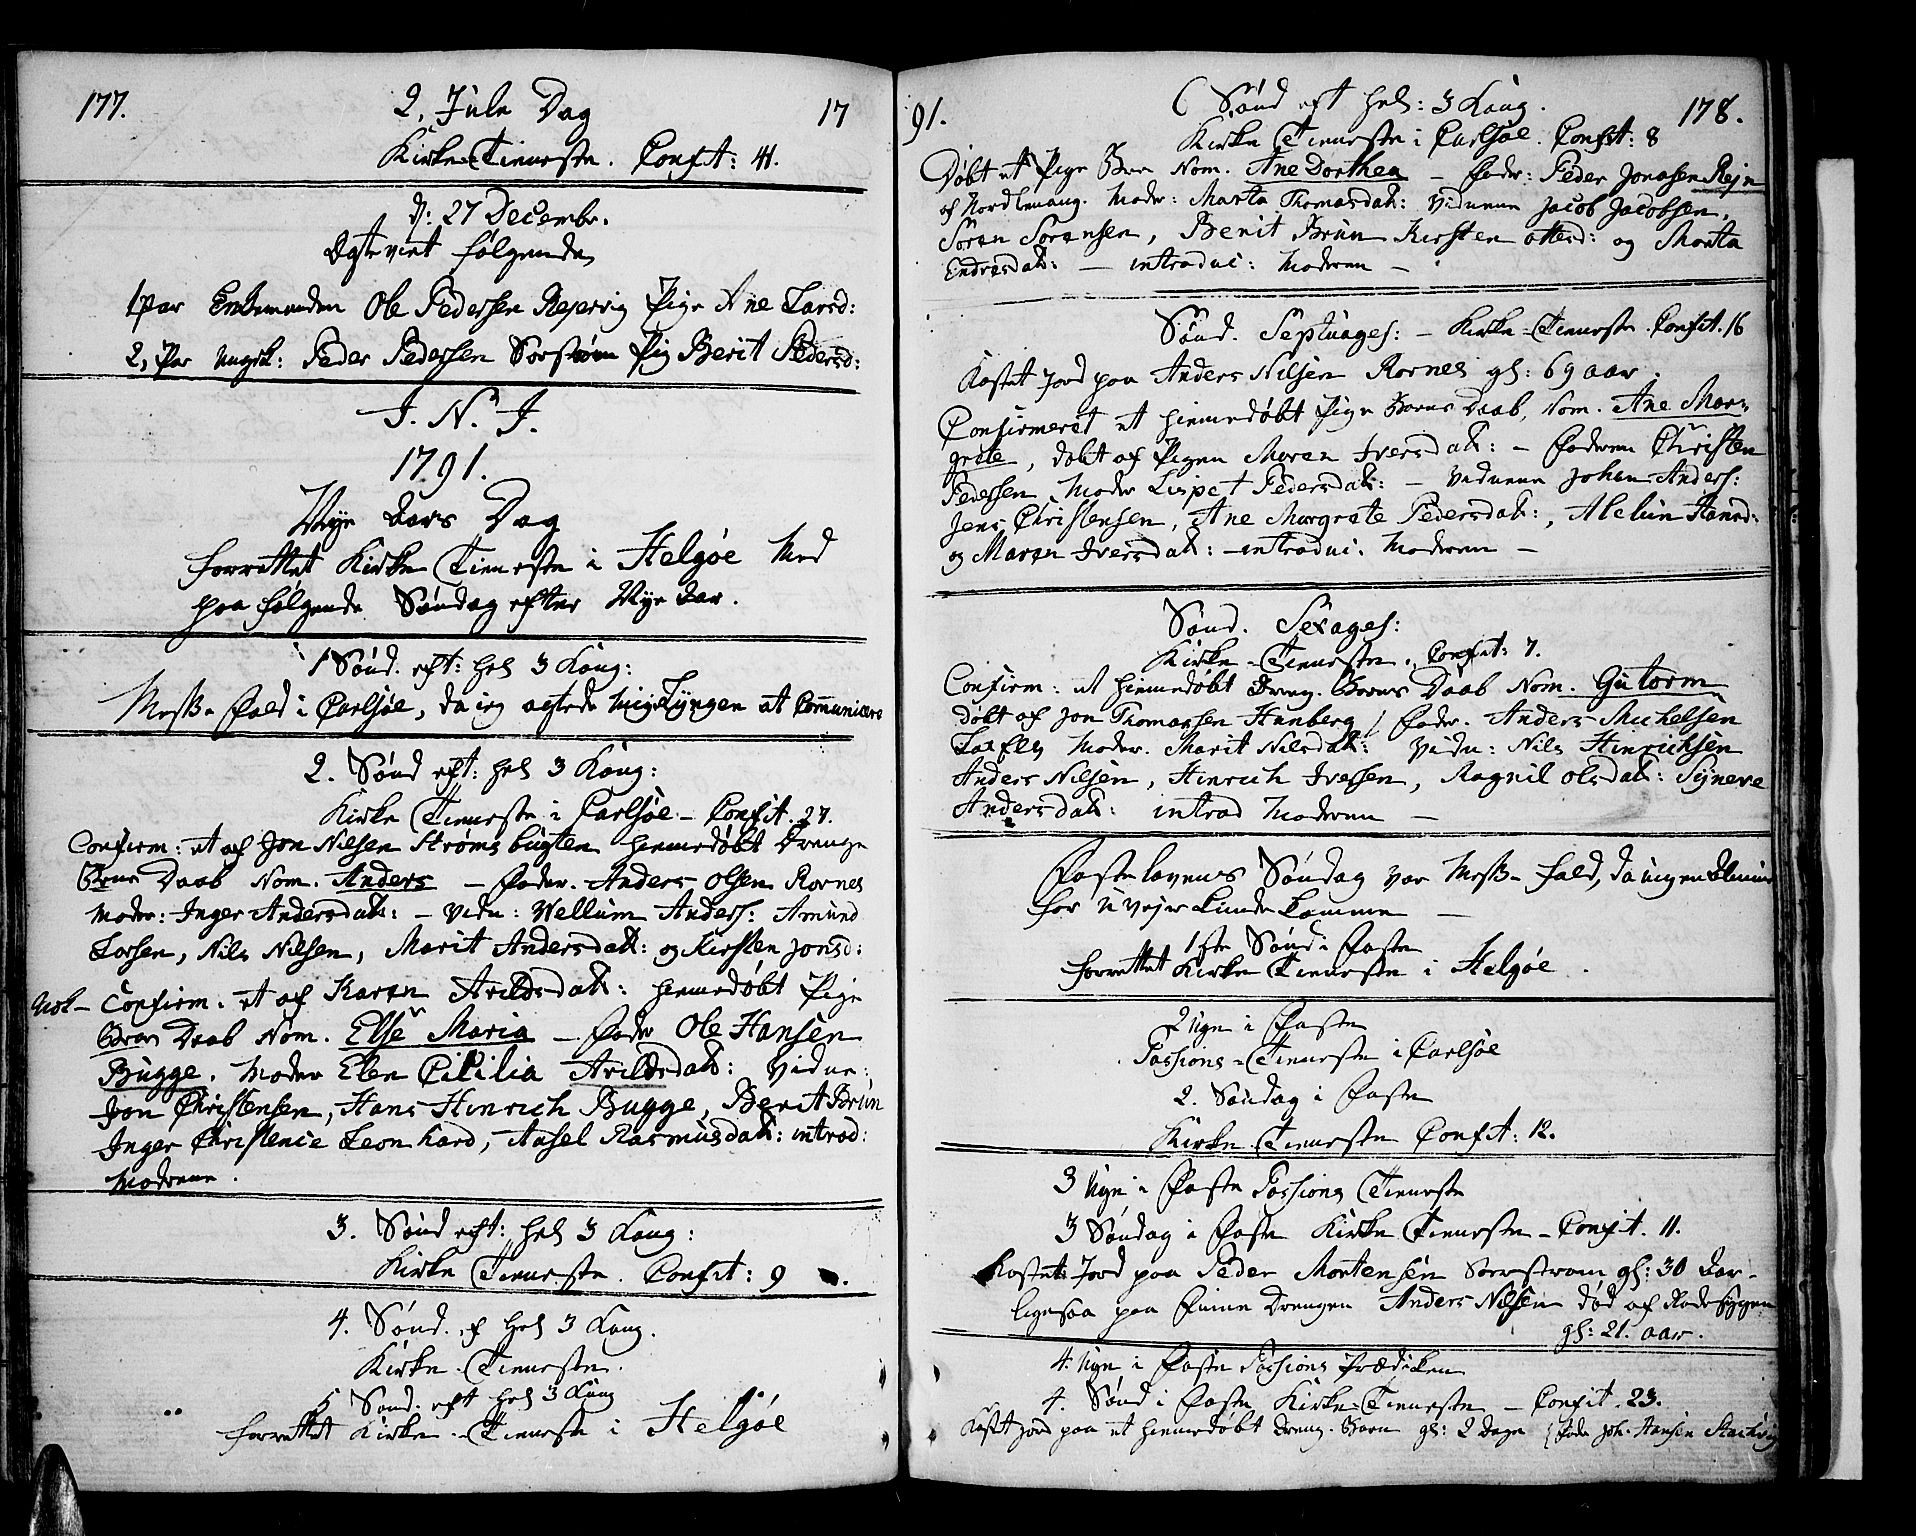 177.
2, Jule Dag
17
Kirke-Tieneste. Confit: 41.
d: 27 Decembr.
Egteviet følgende
1 Par Enkemanden Ole Pedersen Rejervig Pige Ane Larsd:
2, Par Ungk: Peder Pedersen Sorstrøm Pig Berit Pedersd:
J. N. J.
1791.
Nye Aars Dag
forrettet Kirke Tieneste i Helgøe Med
paa følgende Søndag efter Nye Aar.
1 Sønd. eft: hel 3 Kong:
Messe Fald i Carlsøe, da ieg agtede mig Lyngen at Communicere
2. Sønd eft: hel 3 Kong:
Kirke Tieneste i Carlsøe - Confit. 27.
Confirm: et af Jon Nilsen Strømsbugten hiemedøbt Drenge
Barns Daab Nom. Anders - Fader. Anders Olsen Rornes
Moder: Inger Andersdatt: - Vidn: Wellum Anders: Amund
Larsen, Nils Nilsen, Marit Andersdatt: og Kirsten Jonsd:
Nok - Confirm. et af Karen Arildsdatt: hiemedøbt Pige
Barns Daab Nom. Else Maria - Fader Ole Hansen
Bugge. Moder Elen Cicilia Arildsdatt: Vidne:
Jon Christensen, Hans Hinrich Bugge, Berit Brun
Inger Christence Leonhard, Aasel Rasmusdatt: introd:
Moderen.
3. Sønd eft: hel 3 Kong:
Kirke Tieneste. Confit: 9.
4. Sønd. ef hel 3 Kong.
Kirke-Tieneste.
5 Sønd. eft hel 3 Kong
forrettet Kirke-Tieneste i Helgøe
91.
6 Sønd eft hel: 3 Kong.
178.
Kirke Tieneste i Carlsøe. Confit: 8
Døbt et Pige Barn Nom. Ane Dorthea - Fader: Peder Jonasen Rejn
af Nord Lenang. Moder: Marta Thomasdatt: Vidnene Jacob Jacobsen,
Søren Sørensen, Berit Brun Kirsten Ottersd: og Marta
Endresdatt: - introduc: Moderen -
Sønd. Septuages: - Kirke-Tieneste. Confit. 16
Kastet Jord paa Anders Nilsen Rornes gl: 69 aar.
Confirmeret et hiemedøbt Pige Barns Daab, Nom. Ane Mar-
grete, døbt af Pigen Maren Iversdatt: - Faderen Christen
Pedersen Moder Lispet Pedersdatt: - Vidnene Johan Anders:
Jens Christensen, Ane Margrete Pedersdatt:, Alelun Hansd:
og Maren Iversdatt: - introduc. Moderen -
Sønd. Sexages:
Kirke-Tieneste. Confit: 7.
Confirm: et hiemedøbt Dreng. Barns Daab Nom. Gutorm
døbt af Jon Thomassen Hanberg / Fader. Anders Michelsen
Moder. Marit Nilsdatt: Vidn: Nils Hinrichsen
Anders Nilsen, Hinrich Iversen, Ragnil Olsdatt: Synneve
Andersdatt: introd Moderen -
Fastelavens Søndag var Messe-fald, da ingen Almue
for uvejr kunde komme -
1ste Sønd i Faste
forrettet Kirke Tieneste i Helgøe.
2 Uge i Faste
Passions-Tieneste i Carlsøe
2. Søndag i Faste
Kirke-Tieneste Confit: 12.
3 Uge i Faste Passions Tieneste
3 Søndag i Faste Kirke Tieneste - Confit. 11.
Kastet Jord paa Peder Mortensen Sorrstrøm gl: 30 Aar-
ligesaa paa Finne Drengen Anders Nilsen død af Radesygen
gl: 21. aar.
4. Uge i Faste Passions Prædicken
4. Sønd i Faste Kirke-Tieneste - Confit. 23.
Kast Jord paa et hiemedøbt Dreng. Barn gl: 2 Dage (Fader Joh. Hansen